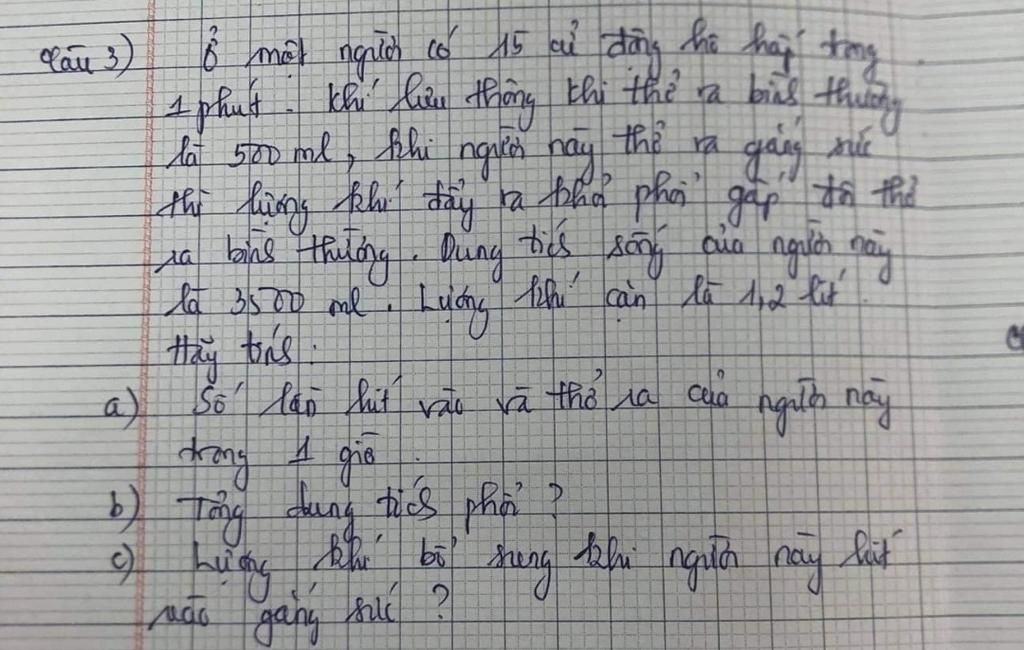 Câu 3) Ở một người có 15 cử động hô hấp trong
1 phút. Khí lưu thông khi thở ra bình thường
là 500 ml, khi người này thở ra gắng sức
thì lượng khí đẩy ra khỏi phổi gấp đôi thở
ra bình thường. Dung tích sống của người này
là 3500 ml. Lượng khí cặn là 1,2 lít.
Hãy tính:
a) Số lần hít vào và thở ra của người này
trong 1 giờ.
b) Tổng dung tích phổi?
c) Lượng khí bổ sung khi người này hít
vào gắng sức?